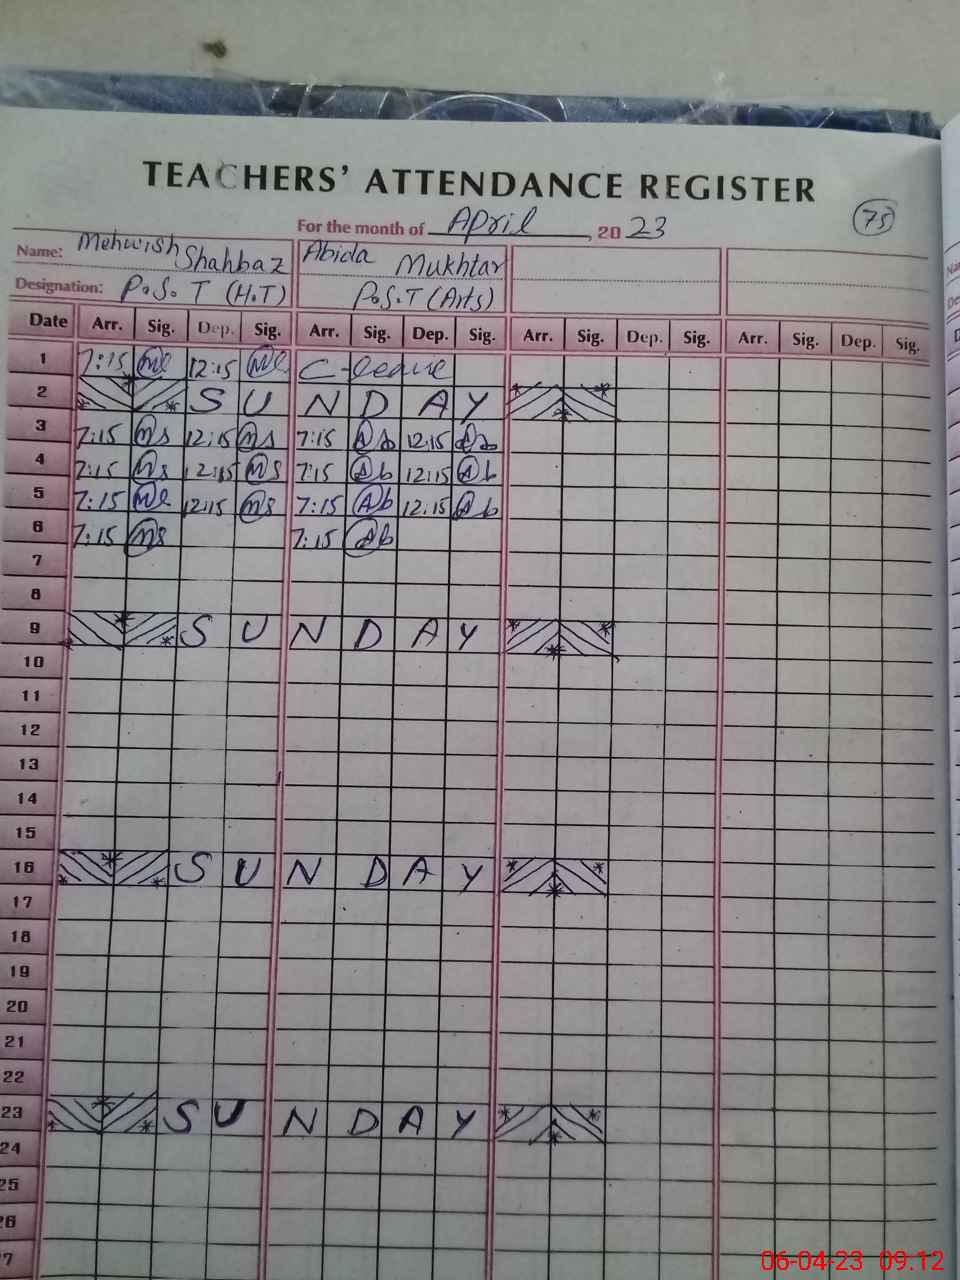 TEACHERS' ATTENDANCE REGISTER
For the month of April, 2023
75
Name: Mehwish Shahbaz Abida Mukhtar
Designation: P.S.T (H.T) P.S.T (Arts)
Date Arr. Sig. Dep. Sig. Arr. Sig. Dep. Sig. Arr. Sig. Dep. Sig. Arr. Sig. Dep. Sig.
1 7:15 12:15 C-leave
2 SUNDAY
3 7:15 Ms 12:15 Ms 7:15 Ab 12:15 Ab
4 7:15 Ms 12:15 Ms 7:15 Ab 12:15 Ab
5 7:15 12:15 Ms 7:15 Ab 12:15 Ab
6 7:15 Ms 7:15 Ab
7
8
9 SUNDAY
10
11
12
13
14
15
16 SUNDAY
17
18
19
20
21
22
23 SUNDAY
24
25
26
7
06-04-23 09.12